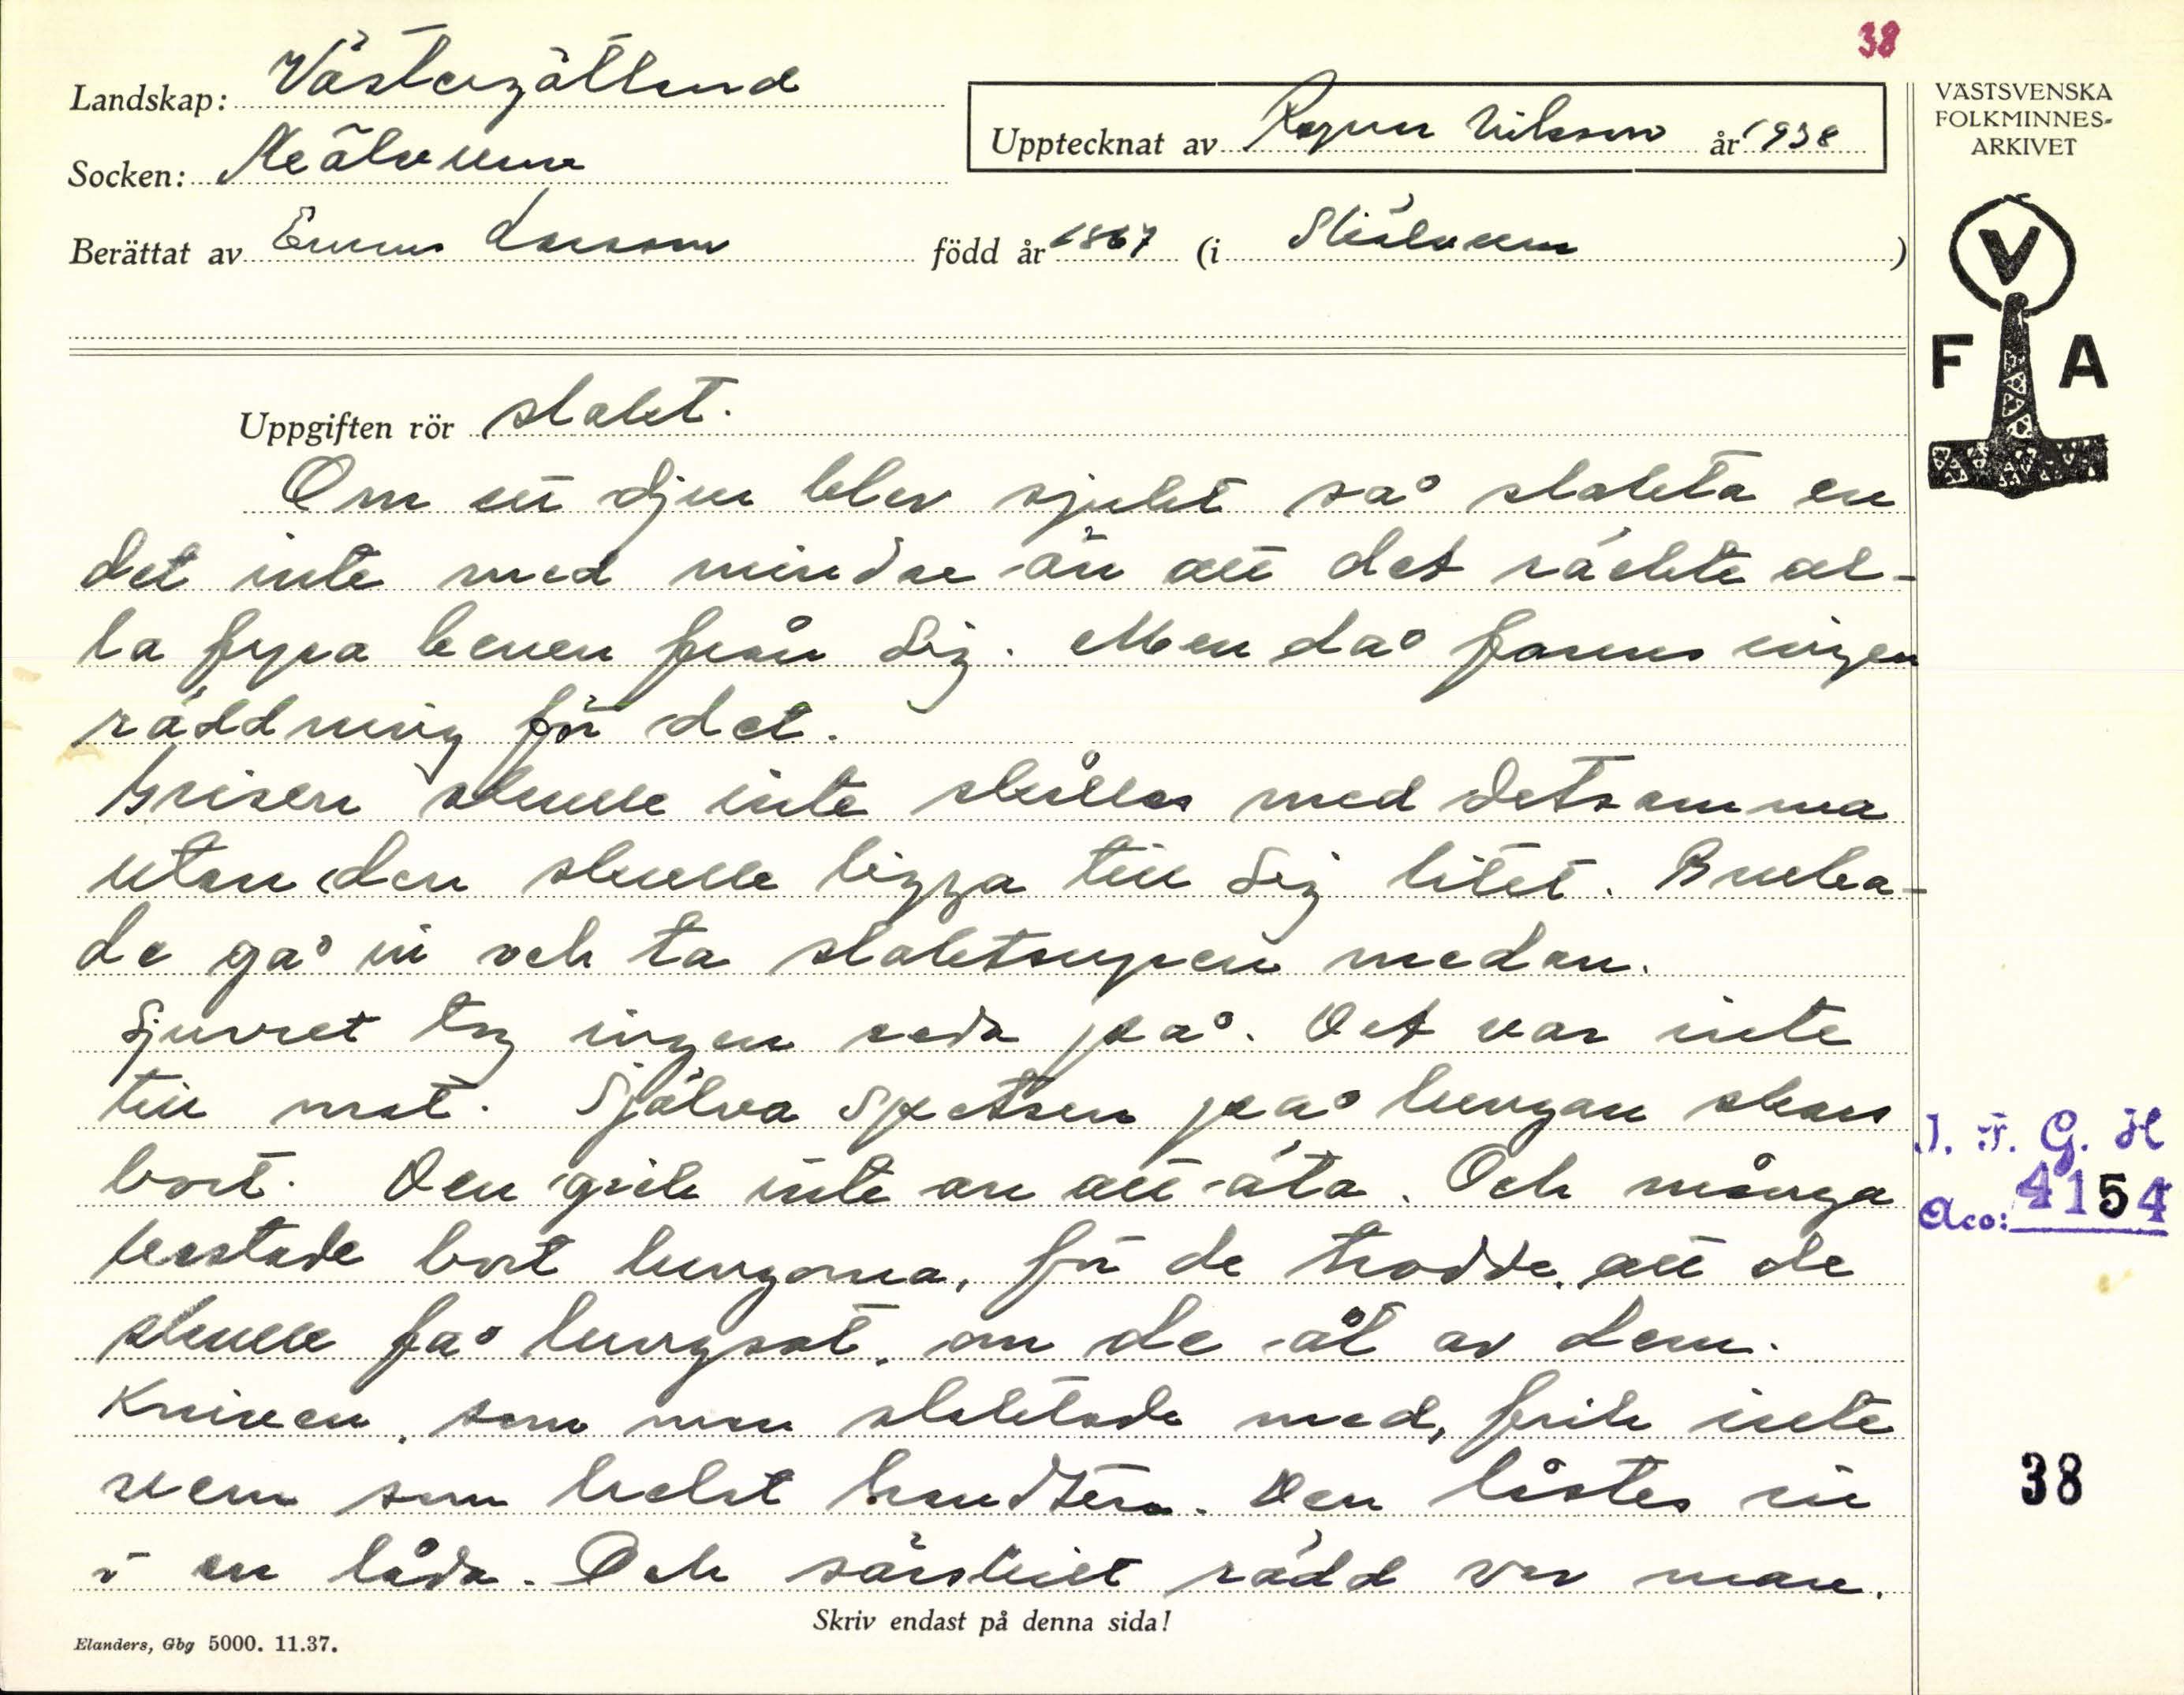 38
Landskap: Västergötland
Socken: Skälvum
Upptecknat av Ragnar Nilsson år 1938
Berättat av Emma Larsson född år 1867 (i Skälvum)
VÄSTSVENSKA
FOLKMINNES-
ARKIVET
V
F A
Uppgiften rör slakt.
Om ett djur blev sjukt så slakta en
det inte med mindre än att det räckte al-
la fyra benen från sig. Men då fanns ingen
räddning för det.
Grisen skulle inte skållas med detsamma
utan den skulle ligga till sig litet. Bruka-
de gå in och ta slaktsupen medan.
Djuvret tog ingen reda på. Det var inte
till mat. Själva spetsen på lungan skars
bort. Den gick inte an att äta. Och många
kastade bort lungorna, för de trodde, att de
skulle få lungsot, om de åt av dem.
Kniven, som man slaktade med, fick inte
vem som helst handtera. Den låstes in
i en låda. Och särskilt rädd var man,
I. F. G. H
Acc: 4154
38
Skriv endast på denna sida!
Elanders, Gbg 5000. 11.37.